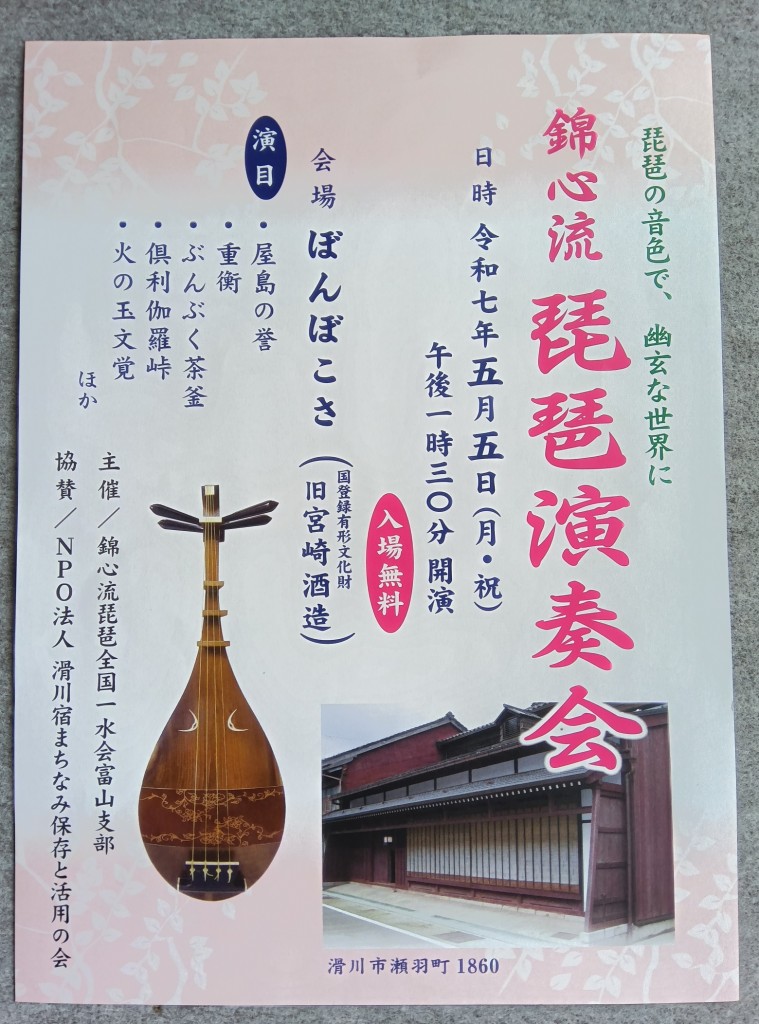 琵琶の音色で、 幽玄な世界に
錦心流 琵琶演奏会
日時 令和七年五月五日(月・祝)
午後一時三〇分 開演
入場無料
会場 ぼんぼこさ (国登録有形文化財 旧宮崎酒造)
演目
・屋島の誉
・重衡
・ぶんぶく茶釜
・倶利伽羅峠
・火の玉文覚
ほか
主催/錦心流琵琶全国一水会富山支部
協賛/NPO法人 滑川宿まちなみ保存と活用の会
滑川市瀬羽町 1860